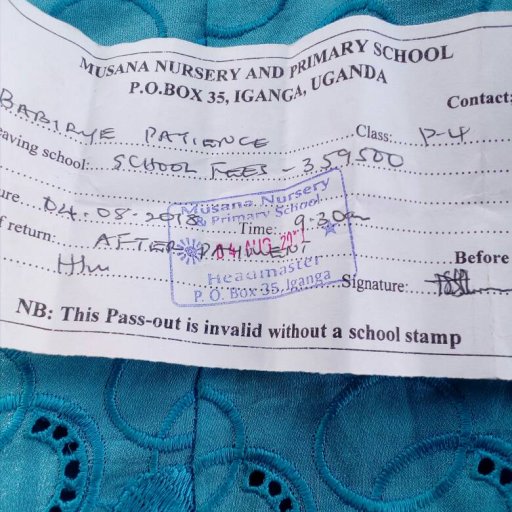 MUSANA NURSERY AND PRIMARY SCHOOL
P.O.BOX 35, IGANGA, UGANDA
Contact:
BABIRYE PATIENCE Class: P-4
eaving school: SCHOOL FEES - 359500
ure. 04.08.2018 Time: 9.30am
f return: AFTER PAYMENT
Before
Signature:
Musana Nursery
& Primary School
04 AUG 201
Headmaster
P. O. Box 35, Iganga
NB: This Pass-out is invalid without a school stamp